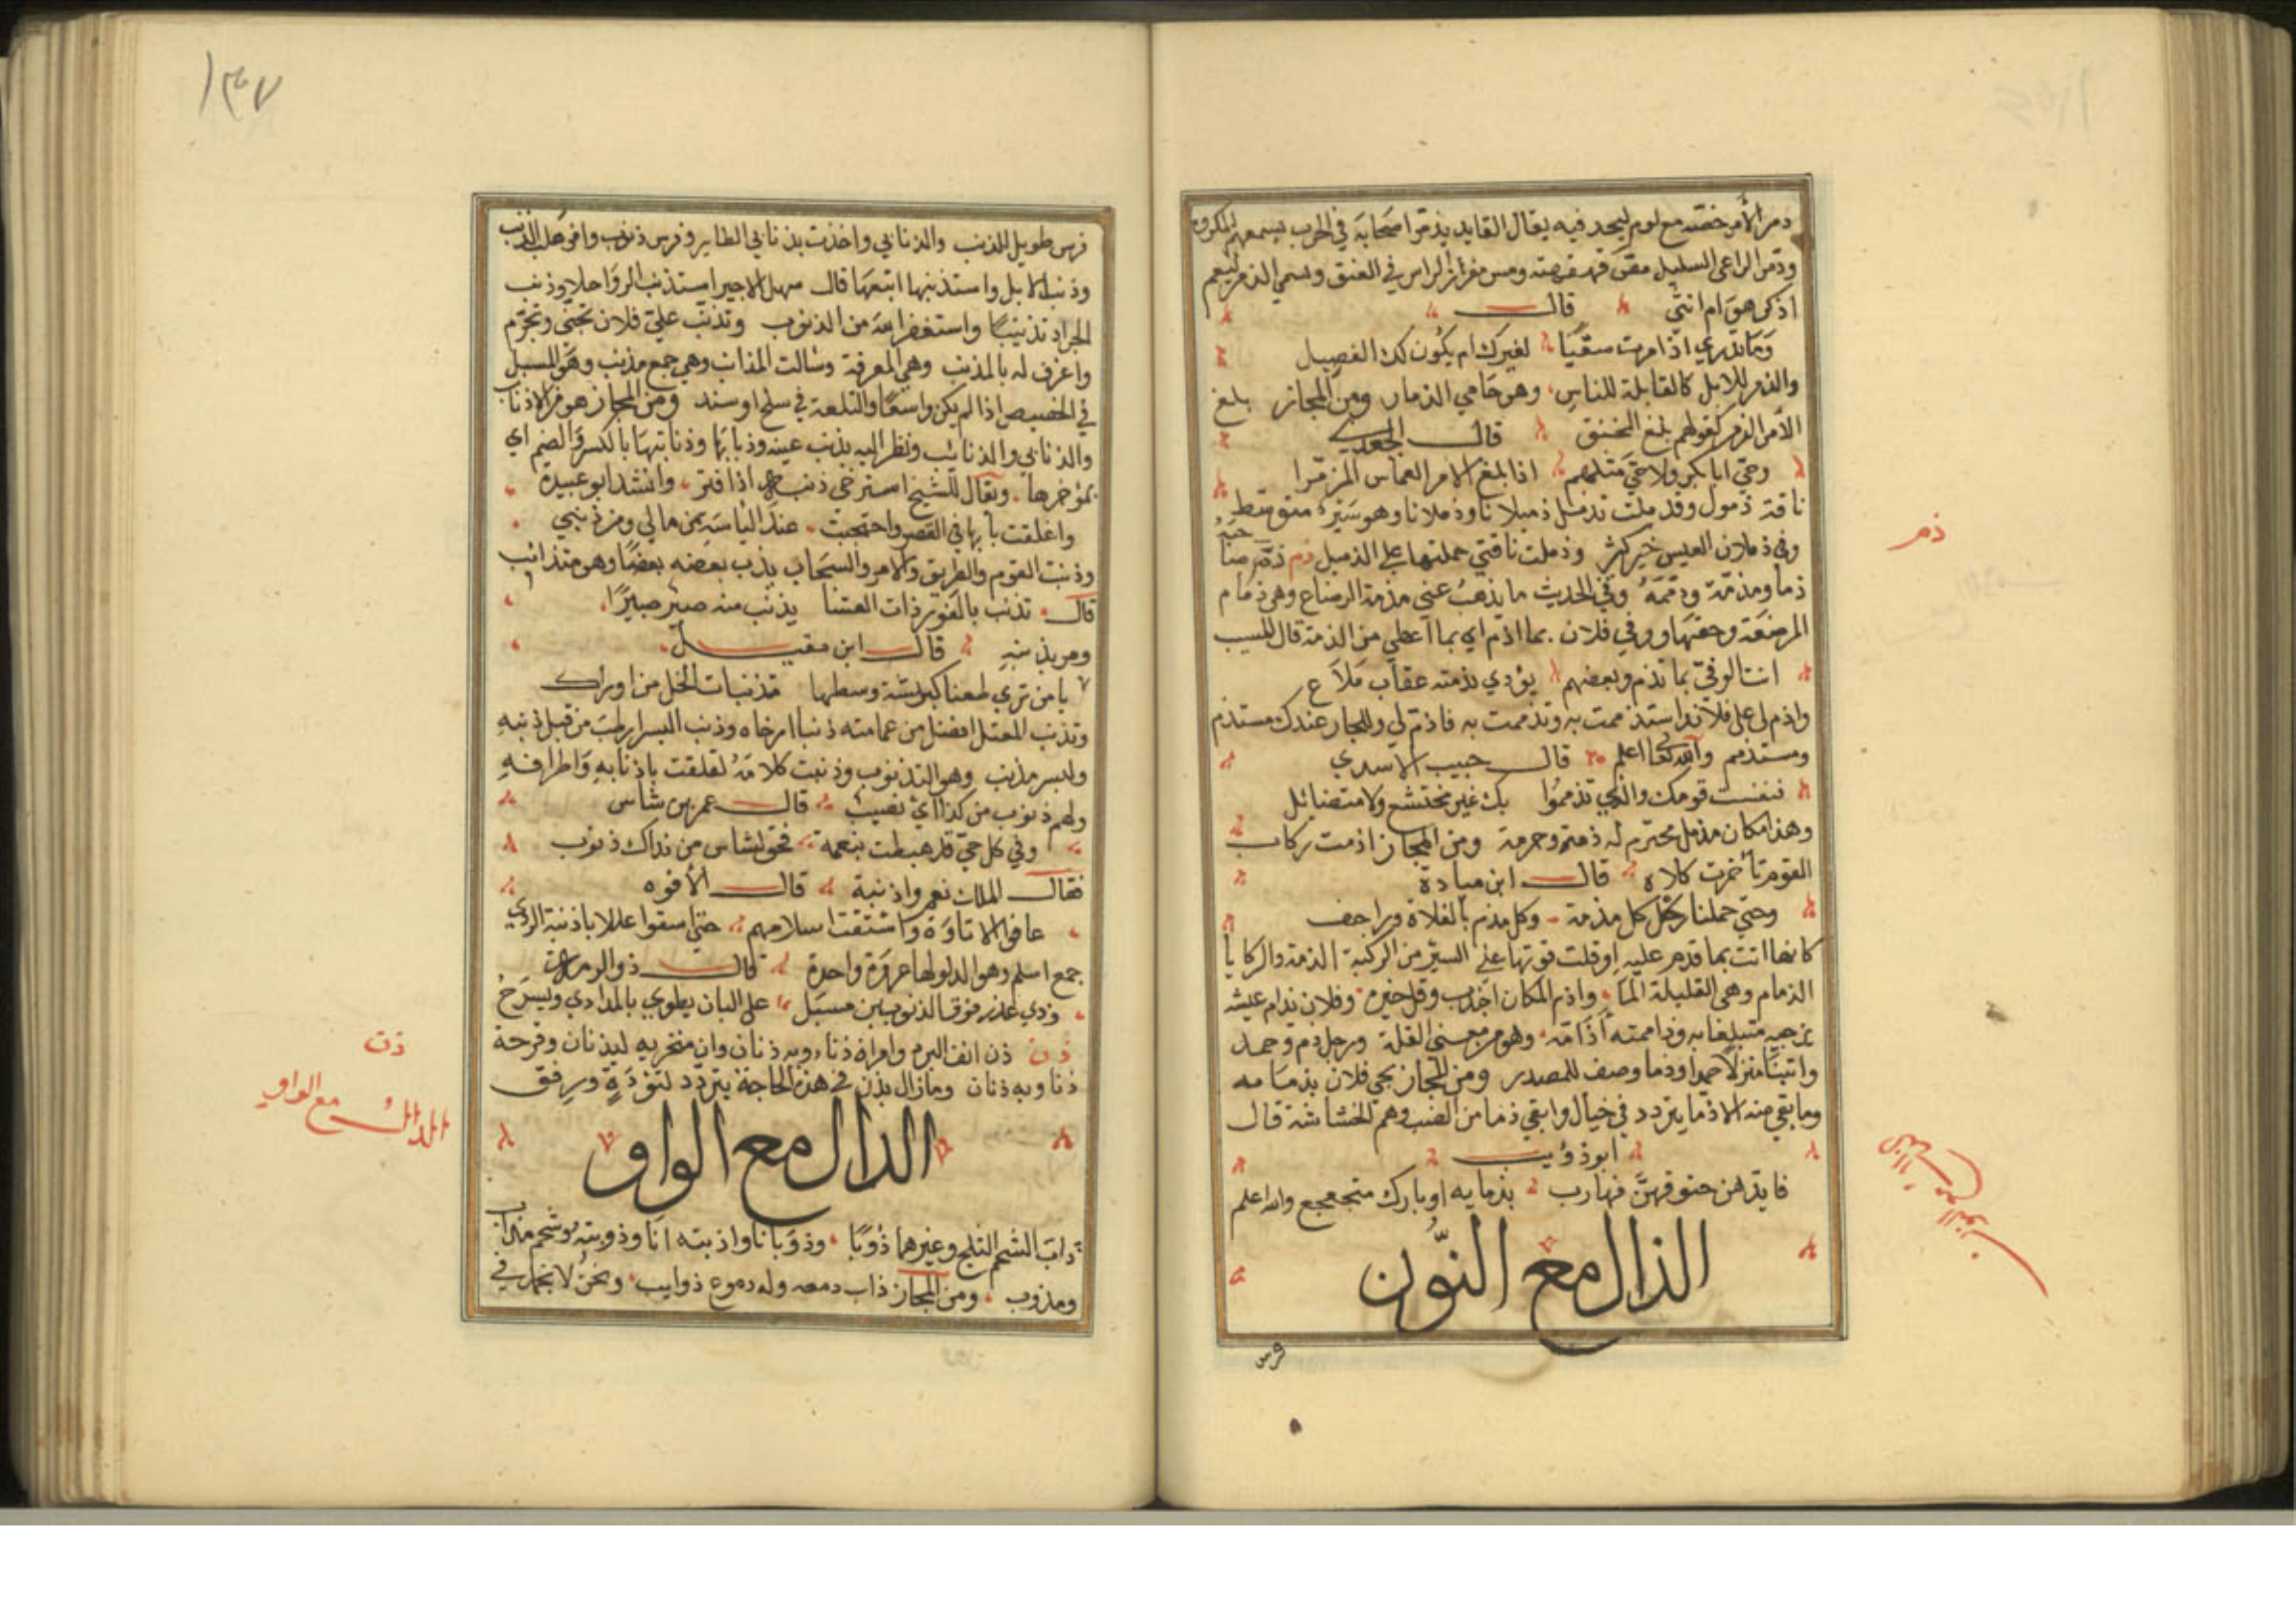 ذمر الأمر حضه مع لوم ليجد فيه يقال القايد يذمر اصحابه في الحرب يسمعهم المكروه
وذمر الراعي السليل
في العنق ويسمي الذمر ليعم
اذكر هو ام انثى قال
وما تدري اذا امرت سقيا لغيرك ام يكون لك الفصيل
والذمر للابل كالقابلة للناس وهو حامي الذمار ومن المجاز بلغ
الأمر الذمر كقولهم بلغ المخنق قال الجعدي
وحي ابا بكر ولا حي مثلهم اذا بلغ الامر العماس المزمرا
ناقة ذمول وقد ذملت تذمل ذميلا نا وذملانا وهو سير متوسط
وفي ذملان العيس خير كثير وذملت ناقتي حملتها علي الذميل ذم ذم
ذما ومذمة وذممه وفي الحديث ما يذهب عني مذمة الرضاع وهي ذمام
المرضعة وحقها ووفي فلان بما اذم اي بما اعطي من الذمة قال المسيب
انت الوفي بما تذم وبعضهم يؤدي بذمته عقاب ملاع
واذم لي علي فلان استذممت به وتذممت به فاذم لي وللجار عندك مستذم
ومستذمم والله تعا اعلم قال حبيب الاسدي
قومك والذي تذمموا بك غير مختشع ولا متضائل
وهذا مكان مذمل محترم له ذمة وحرمة ومن المجاز اذمت ركاب
القوم تأخرت كلالا قال ابن ميادة
وحتي حملنا رحل كل مذمة وكل مذم بالفلاة وراجف
كانها اتت بما تذم عليه او قلت قوتها علي السير من الركية الذمة والركايا
الذمام وهي القليلة الما واذم المكان اجدب وقل خيره وفلان يذام عيشه
يزجيه متبلغا به وذاممته أذامه وهو من معني القلة ورجل ذم وحمد
واتينا منزلا حمدا وذما وصف للمصدر ومن المجاز نجي فلان بذمامه
وما بقي منه الا ذما يتردد في خيال وابقي ذما من الضب وهم الخشاشة قال
ابو ذؤيب
فابدهن حتوفهن فهارب بذمايه او بارك متجعجع والله اعلم
الذال مع النون
فرس
ذم
١٣٧
فرس طويل الذنب والذنابي واخذت بذنابي الطاير وفرس ذنوب وافي هلب الذنب
وذنب الابل واستذنبها اتبعها قال مهل الاجير استذنب الرواحلا وذنب
الجراد تذنيبا واستغفر الله من الذنوب وتذنب علي فلان تجني وتجرم
واغرف له بالمذنب وهي المغرفة وسالت المذانب وهي جمع مذنب وهو المسيل
في الحضيض اذا لم يكن واسعا والتلعة في سلح او سند ومن المجاز هو من الاذناب
والذنابي والذنائب ونظر اليه بذنب عينه وذنابها وذنابتها بالكسر والضم اي
بمؤخرها ويقال للشيخ استرخي ذنبه اذا فتر وانشد ابو عبيدة
واغلقت بابها في القصر واحتجبت عند الياسة من مالي ومن ذنبي
وذنبت القوم والطريق والامر والسحاب يذنب بعضه بعضا وهو متذانب
قال تذنب بالغور ذات العشا يذنب منه صبير صبيرا
ومر يذنبه قال ابن مقبل
يا من تري ظعنا كبيشة وسطها متذنبات الخل من اوراك
وتذنب المعتم افضل من عمامته ذنبا ارخاه وذنب البسر ارطب من قبل ذنبه
والبسر مذنب وهو التذنوب وذنبت كلامه تعلقت باذنابه واطرافه
ولهم ذنوب من كذا اي نصيب قال عمر بن شاس
وفي كل حي قد هبطت بنعمة فحق لشاس من نداك ذنوب
فقال الملك نعم واذنبة قال الأفوه
عافوا الاتاوة واستقت اسلامهم حتي اسقوا عللا باذنبة الردي
جمع اسلم وهو الدلو لها عروة واحدة قال ذو الرمة
وذي عذر فوق الذنوبين مسبل علي البان يطوي بالمداري ويسرح
ذن ذن انف البرم وامراة ذنا وبه ذنان وان منخريه ليذنان وقرحة
ذنا وبه ذنان ومازال يذن في هذه الحاجة يتردد لتؤدة ورفق
الذال مع الواو
ذاب الشحم الثلج وغيرهما ذوبا وذوبانا واذبته انا وذوبته وشحم مذاب
ومذوب ومن المجاز ذاب دمعه وله دموع ذوايب ونحن لا نجمد في
ذن
الذال مع الواو